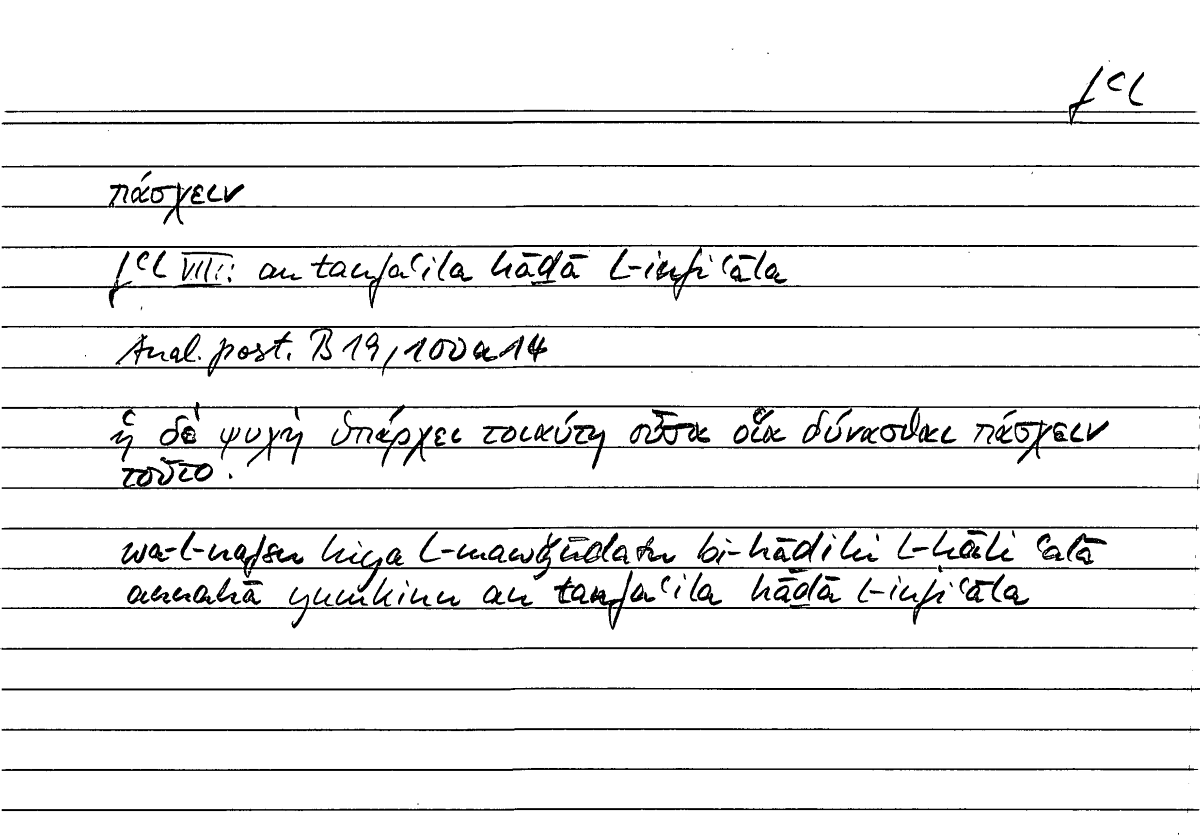 fʿl
πάσχειν
fʿl VIII: an tanfaʿila hāḏā l-infiʿāla
Anal. post. B 19, 100a14
ἡ δὲ ψυχὴ ὑπάρχει τοιαύτη οὖσα οἵα δύνασθαι πάσχειν
τοῦτο.
wa-l-nafsu hiya l-mawǧūdatu bi-hāḏihi l-ḥāli ʿalā
annahā yumkinu an tanfaʿila hāḏā l-infiʿāla